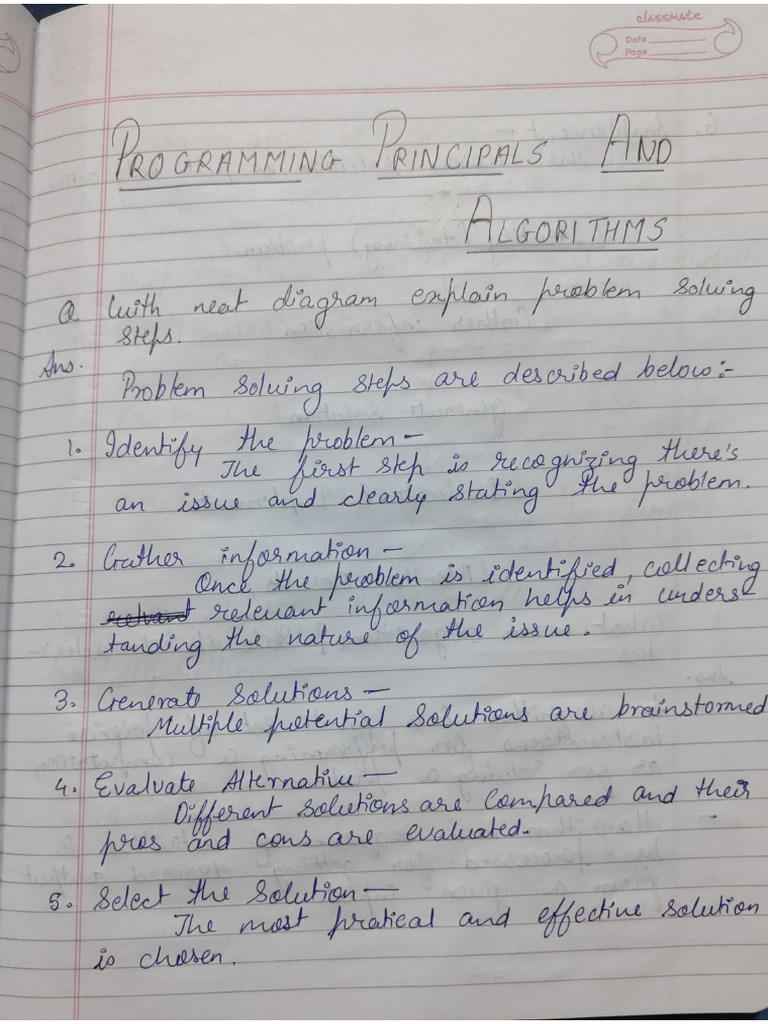 classmate
Date
Page
PROGRAMMING PRINCIPALS AND
ALGORITHMS
Q With neat diagram explain problem solving
steps.
Ans.
Problem solving steps are described below:-
1. Identify the problem -
The first step is recognizing there's
an issue and clearly stating the problem.
2. Gather information -
Once the problem is identified, collecting
relevant information helps in unders-
tanding the nature of the issue.
3. Generate Solutions -
Multiple potential solutions are brainstormed
4. Evaluate Alternative -
Different solutions are compared and their
pros and cons are evaluated.
5. Select the Solution -
The most pratical and effective solution
is chosen.